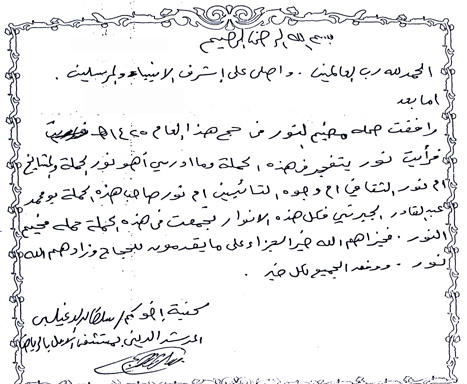 بسم الله الرحمن الرحيم
الحمد لله رب العالمين . واصلي على اشرف الانبياء والمرسلين .
اما بعد
رافقت حملة مخيم النور في حج هذا العام ١٤٢٥هـ
فرأيت نور يتفجر في هذه الحملة وما ادري أهو نور الحملة والمشايخ
ام نور الثقافي ام وجوه التائبين ام نور صاحب هذه الحملة بو محمد
عبدالقادر الجيرتي فكل هذه الانوار تجمعت في هذه الحملة حملة مخيم
النور . فجزاهم الله خير الجزاء على ما يقدمونه للحجاج وزادهم الله
نور . ووفق الجميع لكل خير .
كتبه اخوكم / سلطان الدغيلبي
المرشد الديني بمستشفى الامل بالرياض